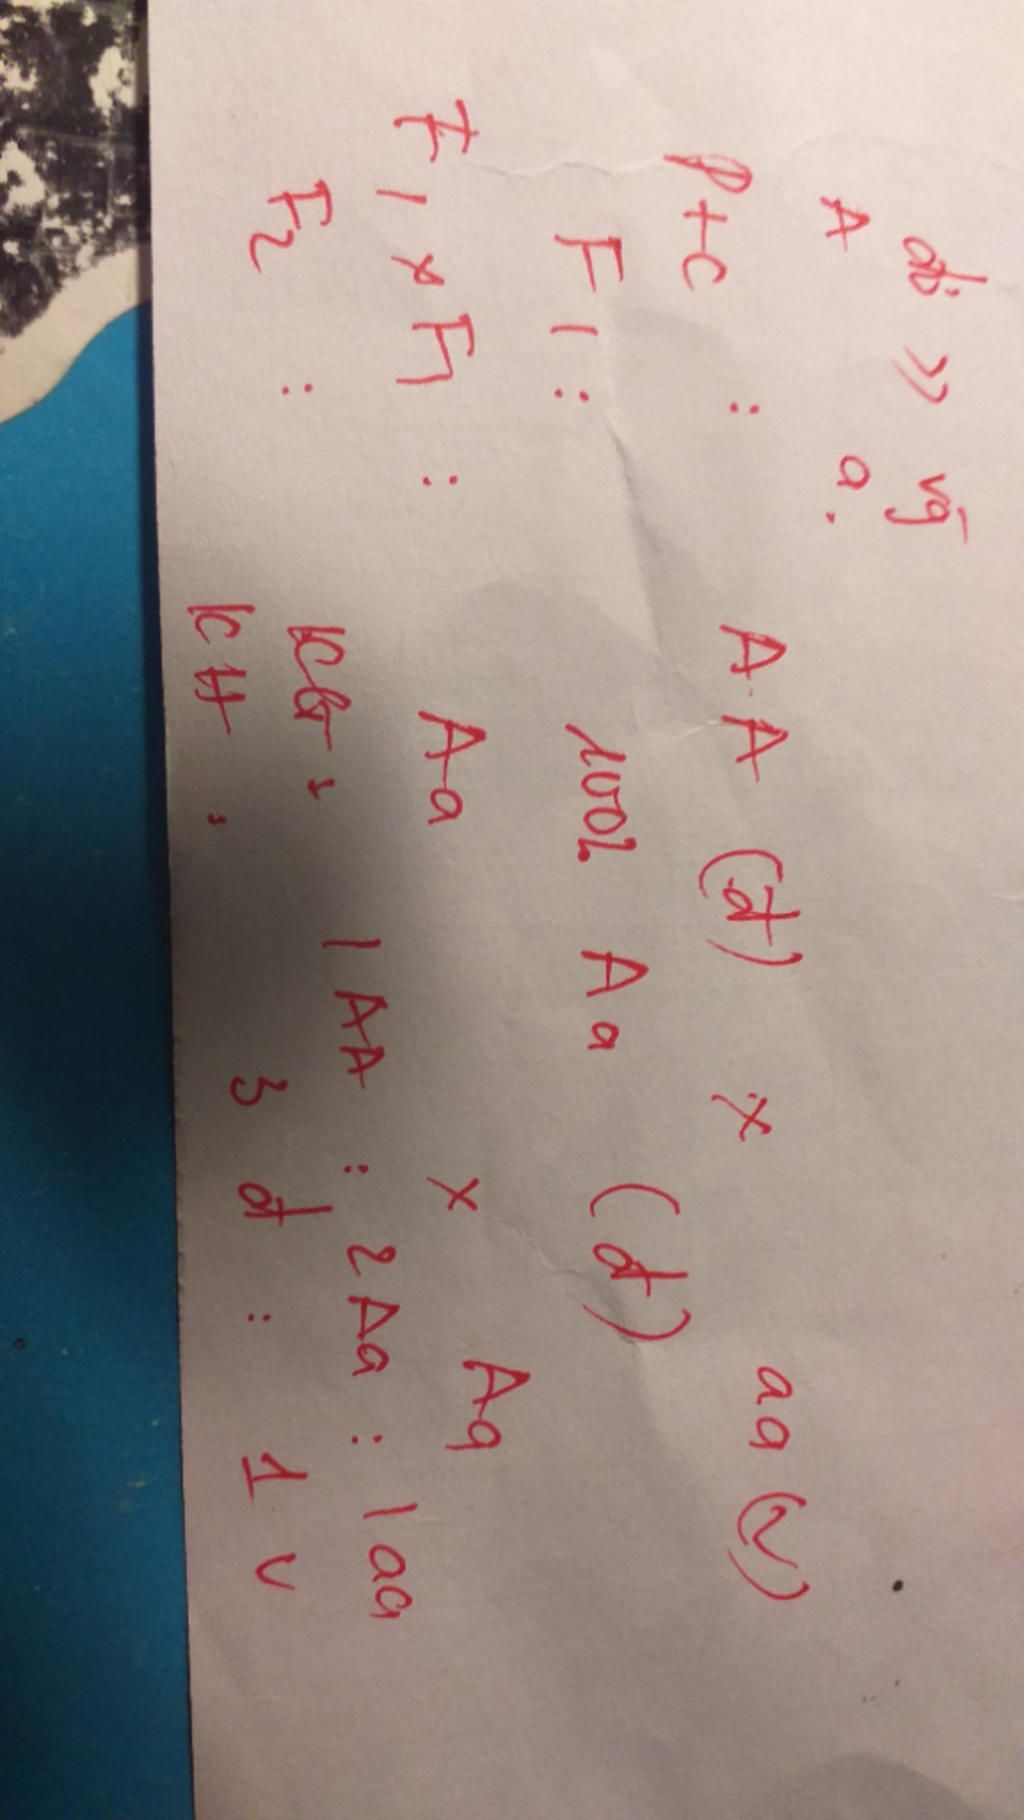 đỏ >> vg
A a.
Pt/c : AA (đ) x aa (v)
F1 : 100% Aa (đ)
F1 x F1 : Aa x Aa
F2 : KG : 1AA : 2Aa : 1aa
KH : 3 đ : 1 v